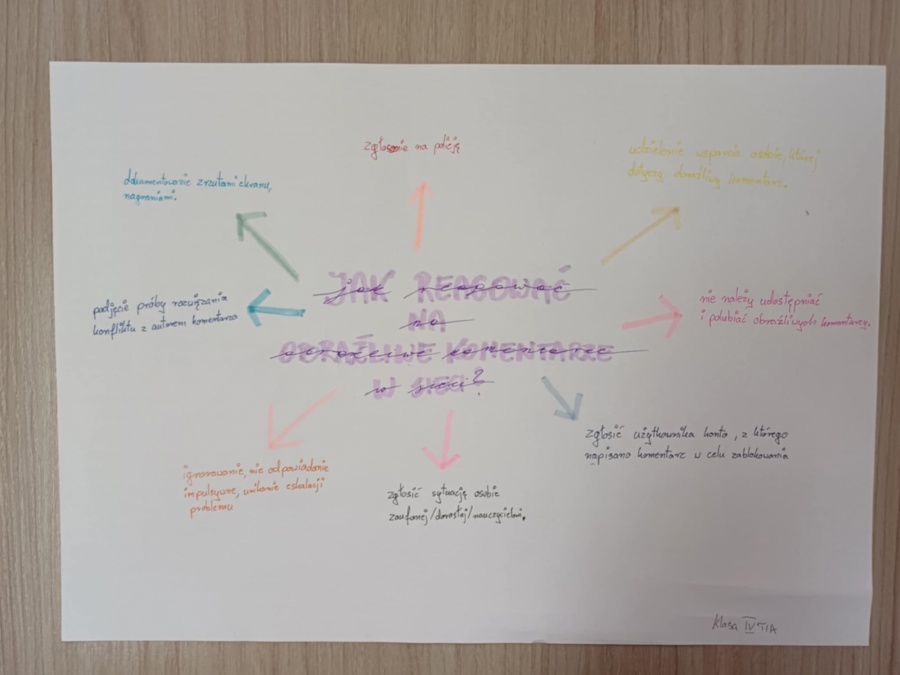 zgłoszenie na policję
udzielenie wsparcia osobie, której
dotyczy obraźliwy komentarz.
dokumentowanie zrzutami ekranu,
nagraniami.
JAK REAGOWAĆ
NA
OBRAŹLIWE KOMENTARZE
W SIECI?
podjęcie próby rozwiązania
konfliktu z autorem komentarza
nie należy udostępniać
i polubiać obraźliwych komentarzy.
zgłosić użytkownika konta, z którego
napisano komentarz w celu zablokowania
ignorowanie, nie odpowiadanie
impulsywne, unikanie eskalacji
problemu
zgłosić sytuację osobie
zaufanej/dorosłej/nauczycielowi.
Klasa IV TIA